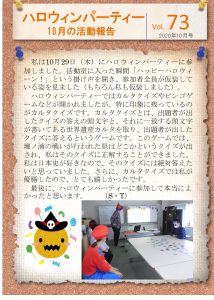 ハロウィンパーティー
10月の活動報告
Vol. 73
2020年10月号
私は10月29日（木）にハロウィンパーティーに参
加しました。活動室に入った瞬間「ハッピーハロウィ
ーン！」という掛け声を聞き、参加者全員が仮装して
いる姿を見ました（もちろん私も仮装しました）。
ハロウィンパーティーではカルタクイズやビンゴゲ
ームなどが開かれましたが、特に印象に残っているの
がカルタクイズです。カルタクイズとは、出題者が出
したクイズの答えの頭文字と、それに一致する頭文字
が書いてある世界遺産カルタを取り、出題者が出した
クイズに答えるというゲームです。このゲームでは、
壇ノ浦の戦いが行われた県はどこかというクイズが出
され、私はそのクイズに正解することができました。
私は日本史が好きなので、そのクイズには絶対答えた
いと思っていました。さらに、カルタクイズでは私が
優勝したので、とても嬉しかったです。
最後に、ハロウィンパーティーに参加して本当によ
かったと思います。（S・T）